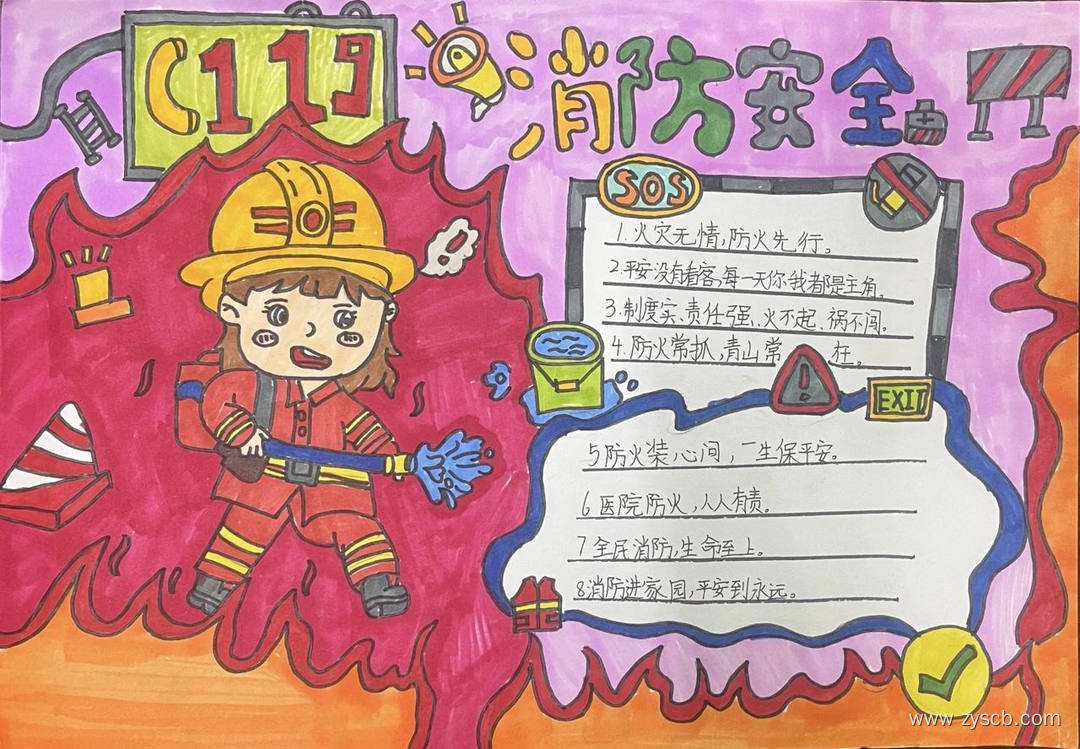 119
消防安全
SOS
1.火灾无情,防火先行。
2.平安没有看客,每一天你我都是主角。
3.制度实、责任强、火不起、祸不闯。
4.防火常抓,青山常在。
EXIT
5防火装心间,一生保平安。
6医院防火,人人有责。
7全民消防,生命至上。
8消防进家园,平安到永远。
www.zyscb.com